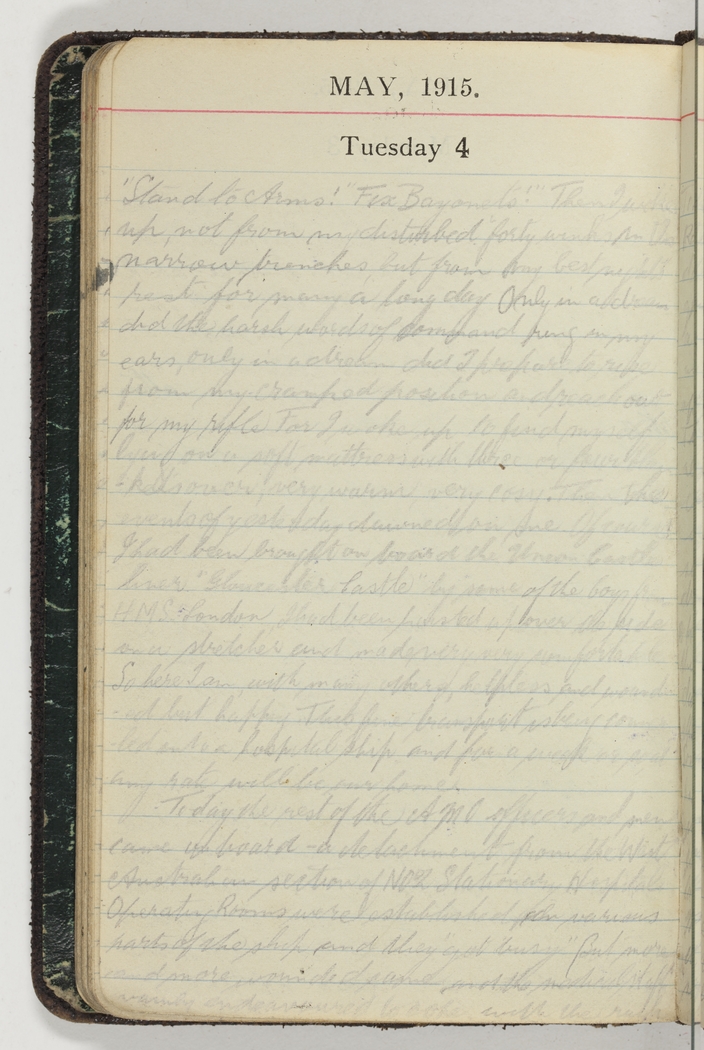 MAY, 1915.
Tuesday 4
"Stand to Arms!" "Fix Bayonets!" Then I woke
up, not from my disturbed "forty winks" in the
narrow trenches but from my best night's
rest for many a long day. Only in a dream
did the harsh words of command ring in my
ears, only in a dream did I prepare to rise
from my cramped position and reach out
for my rifle. For I woke up to find myself
lying on a soft mattress with three or four
very warm very cosy. Then the
events of yesterday dawned on me. Of course
I had been brought on board the Union Castle
liner "Gloucester Castle" by some of the boys from
H.M.S. London. I had been hoisted up over the side
on a stretcher and made very very comfortable
So here I am, with many others helpless and wound
-ed but happy. This fine transport is being conver
-ted into a hospital ship and for a week or so at
any rate will be our home.
Today the rest of the AMC officers and men
came on board - a detachment from the West
Australian section of No 2 Stationary Hospital.
Operating Rooms were established in various
parts of the ship and they "got busy". But more
and more wounded came and the medical staff
endeavoured to cope with the rush